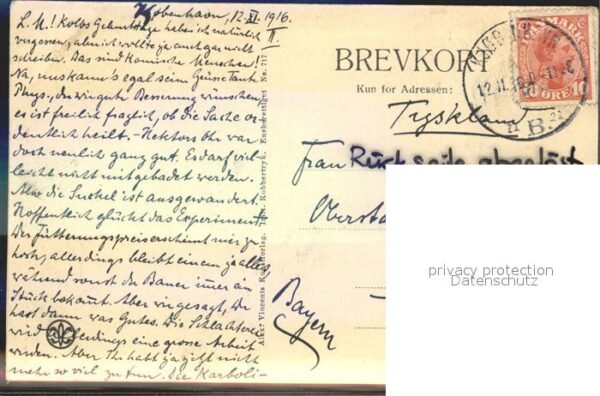 København, 12. XI. 1916.
II
L. M.! Kolbs Geburtstage habe ich natürlich
vergessen, aber ich wollte ja auch gar nicht
schreiben. Das sind komische Menschen!
Na, uns kann's egal sein
der wir gute Besserung wünschen,
es ist freilich fraglich, ob die Sache or-
dentlich heilt. - Hektors Ohr war
doch neulich ganz gut. Es darf viel-
leicht nicht mitgebadet werden.
Also die Suckel ist ausgewandert.
Hoffentlich glückt das Experiment.
Der Fütterungspreis erscheint mir zu
hoch, allerdings bleibt einem ja alles,
während sonst der Bauer immer ein
Stück bekommt. Aber wie gesagt, Du
hast dann was Gutes. Die Schlachterei
wird allerdings eine grosse Arbeit
werden. Aber Ihr habt ja jetzt nicht
mehr so viel zu tun. Die Karboli-
Alex. Vincents Kunstforlag. Eneberettiget No. 717
BREVKORT
Kun for Adressen:
Tyskland
Frau Rückseite abgelöst
Obersta
Bayern
DANMARK
10 ØRE 10
KJØBENHAVN
12.11.16
B.
privacy protection
Datenschutz